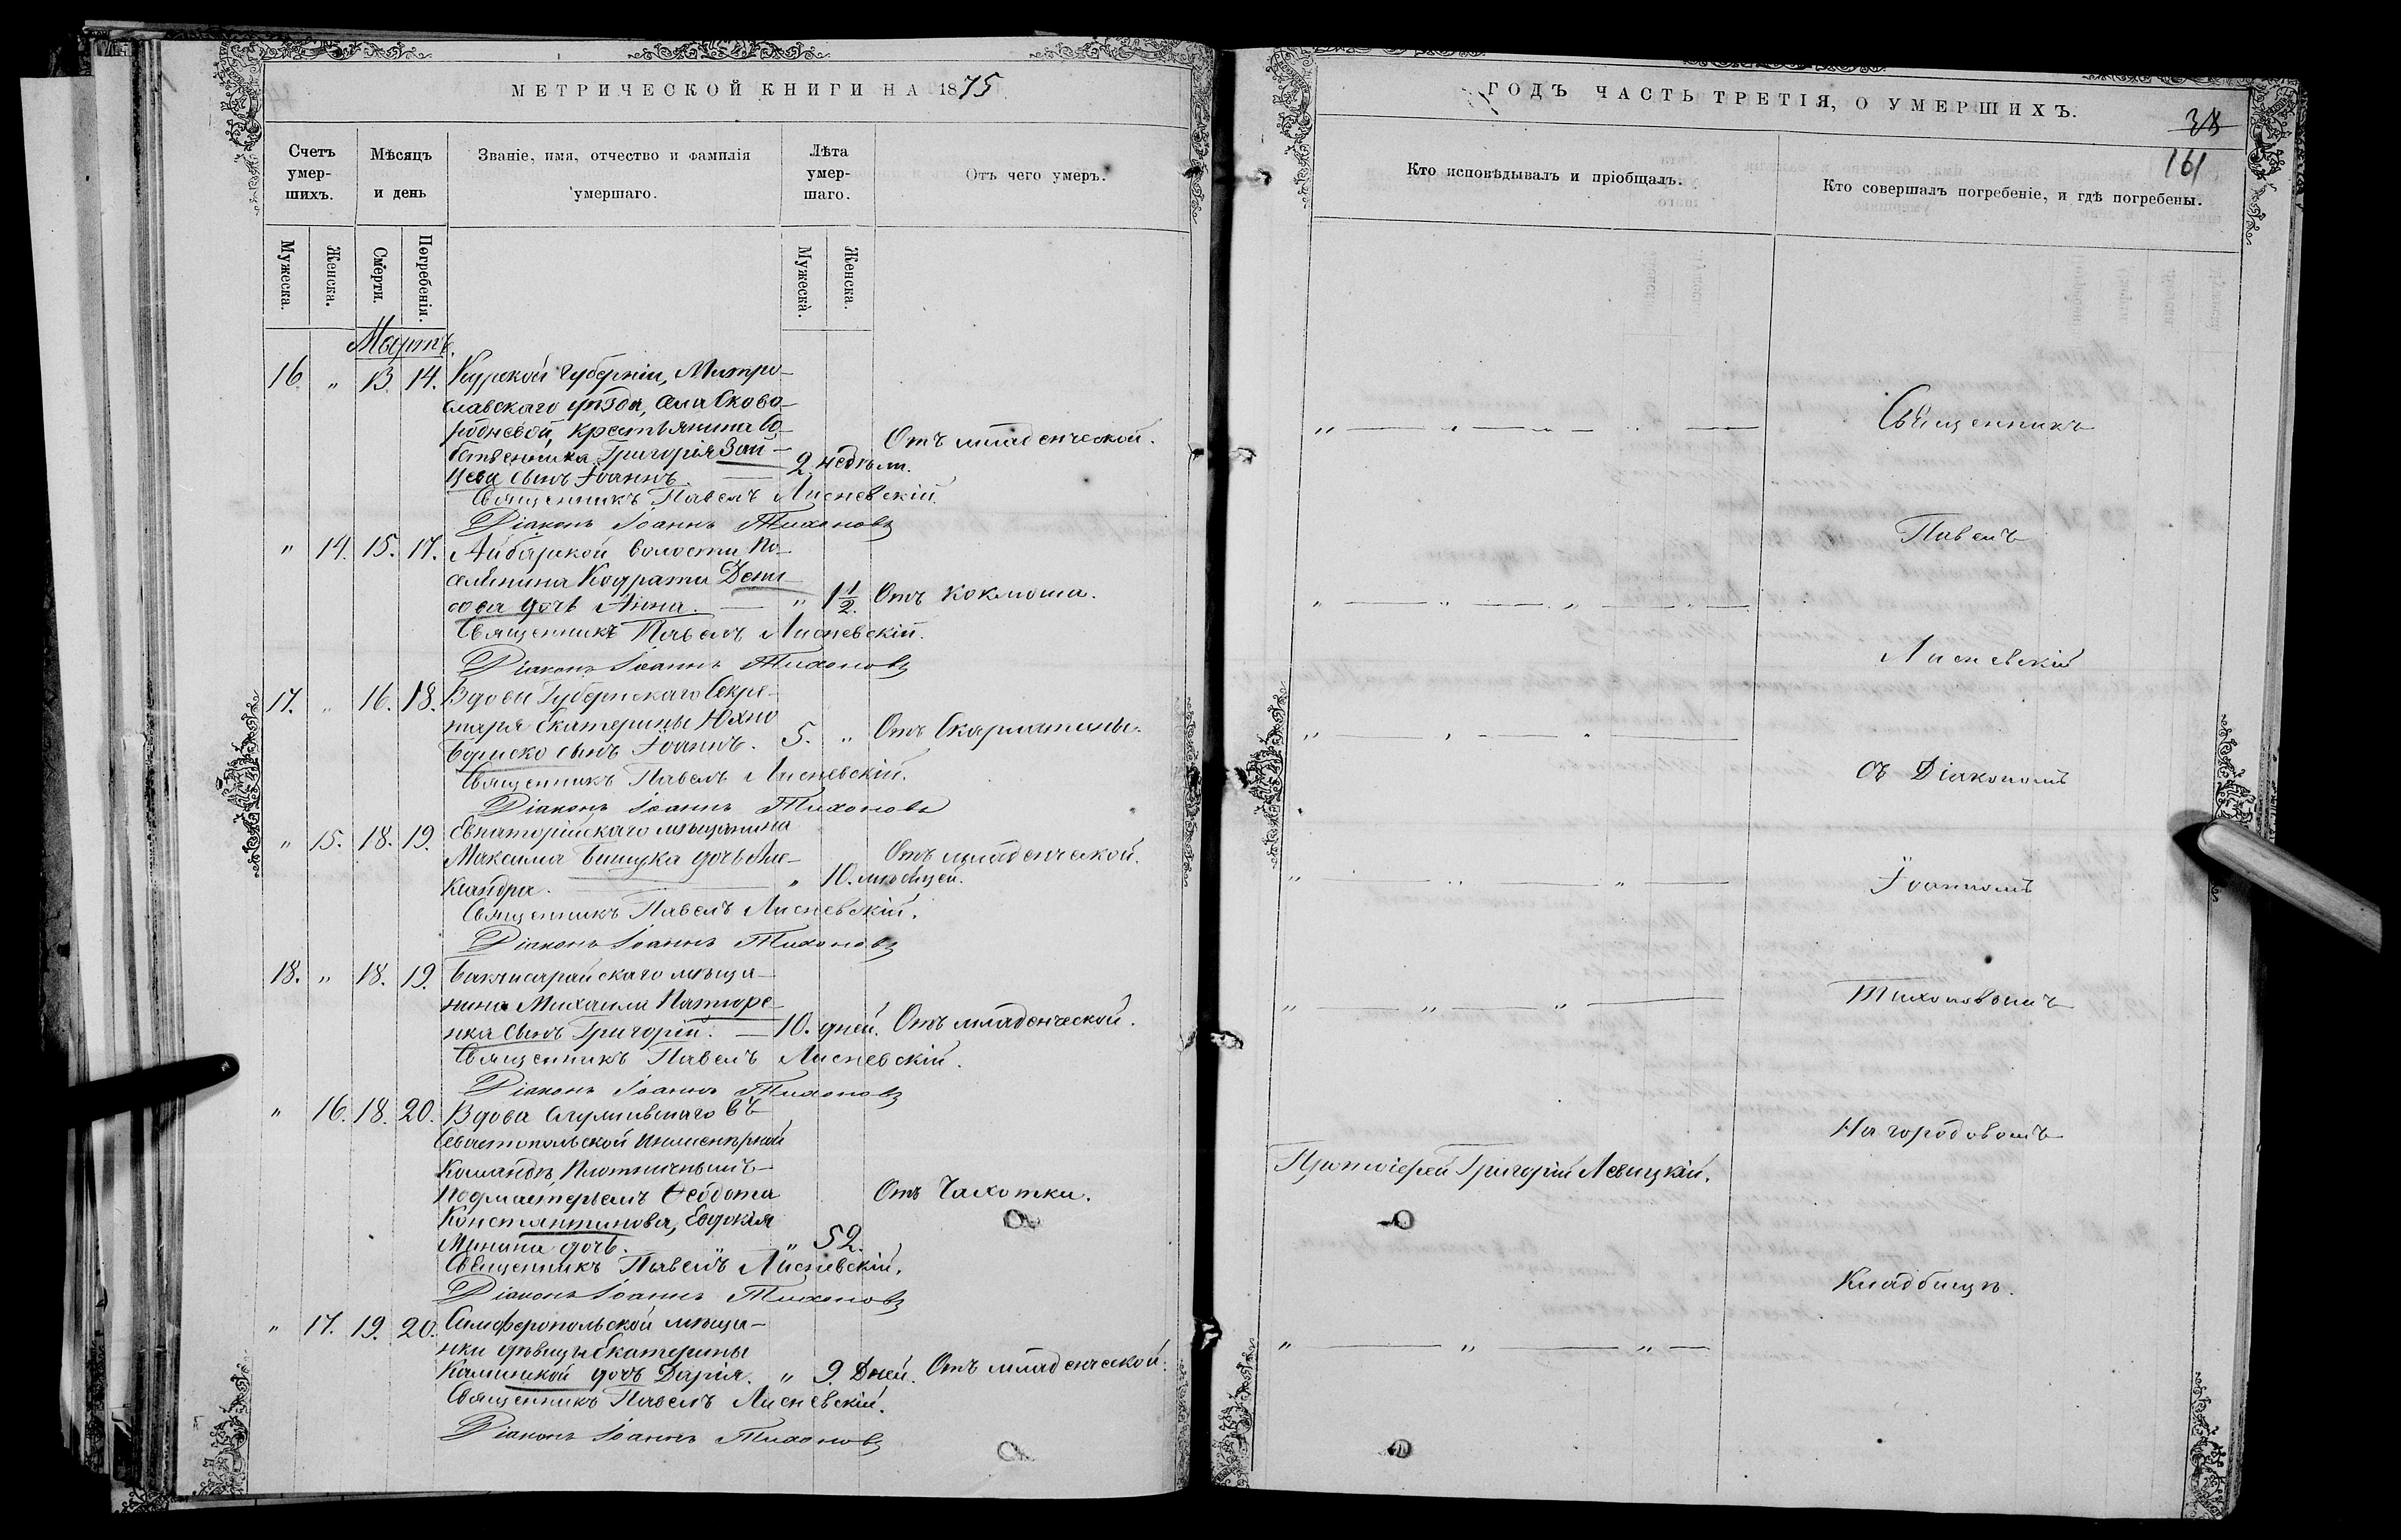 МЕТРИЧЕСКОЙ КНИГИ НА 1875
Счетъ умер-шихъ.
Мѣсяцъ и день
Званіе, имя, отчество и фамилія умершаго.
Лѣта умер-шаго.
Отъ чего умеръ.
Мужеска.
Женска.
Смерти.
Погребенія.
Мужеска.
Женска.
Мартъ.
16 „ 13 14. Курской губерніи, Митро-
славскаго уѣзда, села Сково-
родневой, крестьянина Со-
бственника Григорія Зай- Отъ младенческой.
цева сынъ Іоаннъ. 2 недѣли.
Священникъ Павелъ Лисневскій.
Діаконъ Іоаннъ Тихоновъ
„ 14. 15. 17. Айбарской волости По-
селянина Кодрата Дени-
сова дочь Анна. — „ 1 1/2. Отъ коклюша.
Священникъ Павелъ Лисневскій.
Діаконъ Іоаннъ Тихоновъ
17. „ 16. 18. Вдовы Губернскаго Секре-
таря Екатерины Юхно
Бориско сынъ Іоаннъ. 5. „ Отъ Скарлатины.
Священникъ Павелъ Лисневскій.
Діаконъ Іоаннъ Тихоновъ
„ 15. 18. 19. Евпаторійскаго мѣщанина
Максима дочь Але- Отъ младенческой.
ксандра. „ 10. мѣсяцей.
Священникъ Павелъ Лисневскій.
Діаконъ Іоаннъ Тихоновъ
18. „ 18. 19. Бакчисарайскаго мѣща-
нина Михаила Натюре-
нка сынъ Григорій. — 10. дней. Отъ младенческой.
Священникъ Павелъ Лисневскій.
Діаконъ Іоаннъ Тихоновъ
„ 16. 18. 20. Вдова служившаго въ
Севастопольской Инженерной
Командѣ, Плотничнымъ
Подмастерьемъ Ѳеодота Отъ Чахотки.
Константинова, Евдокія
Минина дочь. „ 52.
Священникъ Павелъ Лисневскій.
Діаконъ Іоаннъ Тихоновъ
„ 17. 19. 20. Симферопольской мѣща-
нки дѣвицы Екатерины
Калицкой дочь Дарія. „ 9. Дней. Отъ младенческой.
Священникъ Павелъ Лисневскій.
Діаконъ Іоаннъ Тихоновъ
ГОДЪ ЧАСТЬ ТРЕТІЯ, О УМЕРШИХЪ.
38
161
Кто исповѣдывалъ и пріобщалъ.
Кто совершалъ погребеніе, и гдѣ погребены.
Священникъ
Павелъ
Лисневскій
съ Діакономъ
Іоанномъ
Тихоновымъ
На городовомъ
Протоіерей Григорій Левицкій.
Кладбищѣ.